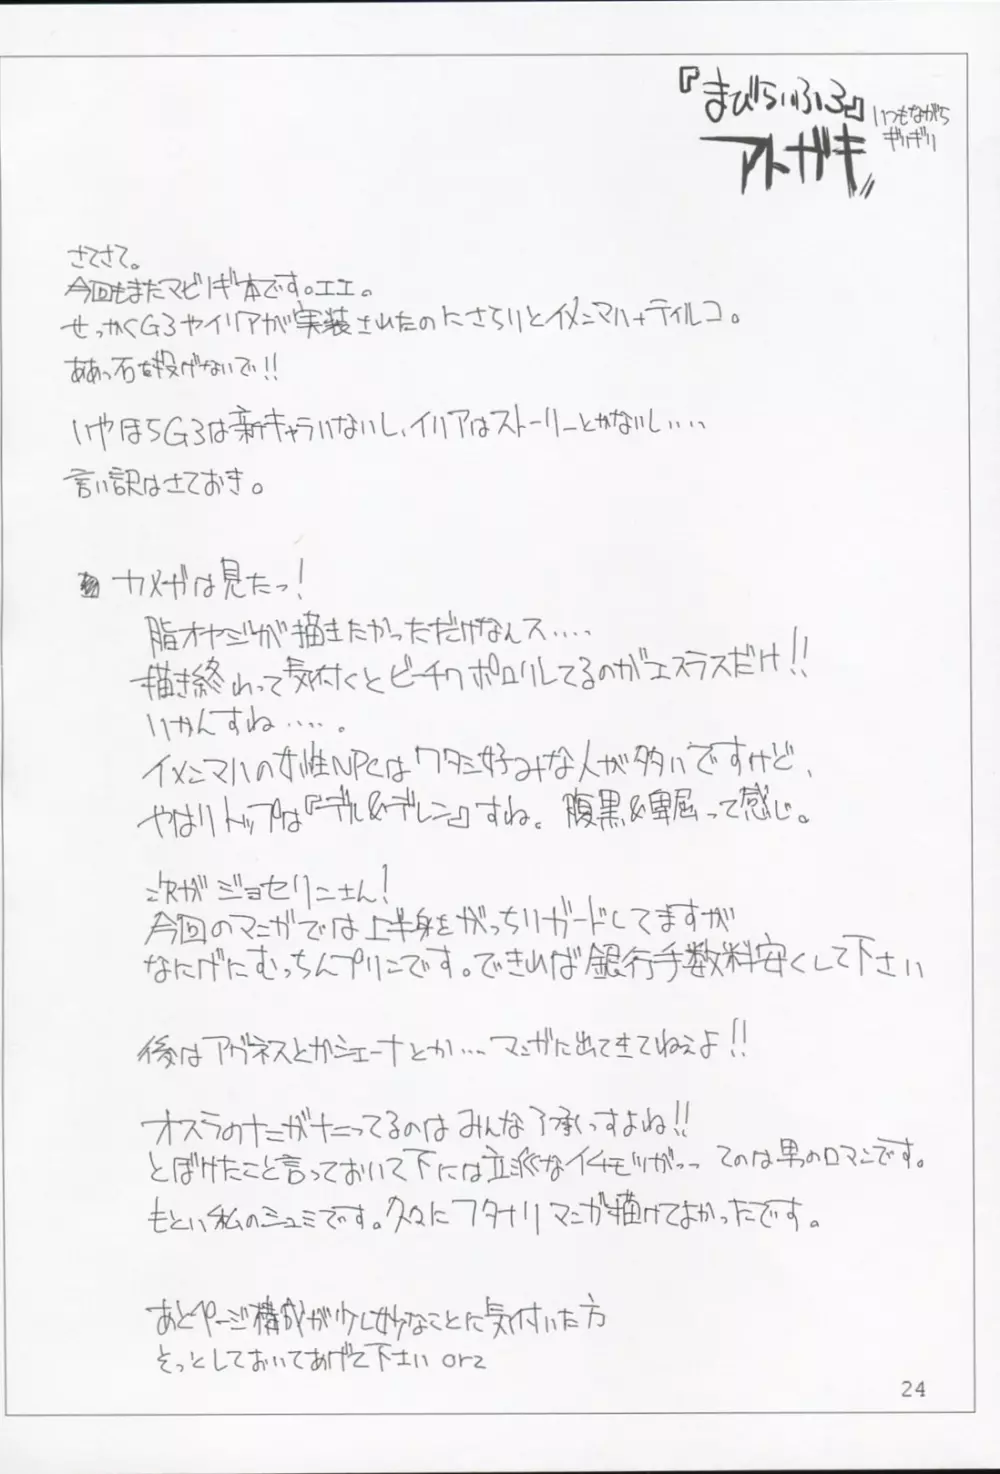 『まびらいふ3』
いつもながら
ギリギリ
アトガキ
さてさて。
今回もまたマビノギ本です。エエ。
せっかくG3やイリアが実装されたのにさらりとイメンマハ+ティルコ。
ああっ石を投げないで!!
いやほらG3は新キャラいないし、イリアはストーリーとかないし‥‥
言い訳はさておき。
カメガは見たっ!
脂オヤジが描きたかっただけなんス‥‥
描き終わって気付くとビーチクポロリしてるのがエスラスだけ!!
いかんすね‥‥。
イメンマハの女性NPCはワタシ好みな人が多いですけど、
やはりトップは『デル&デレン』すね。腹黒&卑屈って感じ。
次がジョセリンさん!
今回のマンガでは上半身をがっちりガードしてますが
なにげにむっちんプリンです。できれば銀行手数料安くして下さい
後はアグネスとかシェーナとか‥‥マンガに出てきてねぇよ!!
オスラのナニがナニってるのはみんな了承っすよね!!
とぼけたこと言っておいて下には立派なイチモツがっ‥てのは男のロマンです。
もとい私のシュミです。久々にフタナリマンガ描けてよかったです。
あとページ構成が少し妙なことに気付いた方
そっとしておいてあげて下さい orz
24